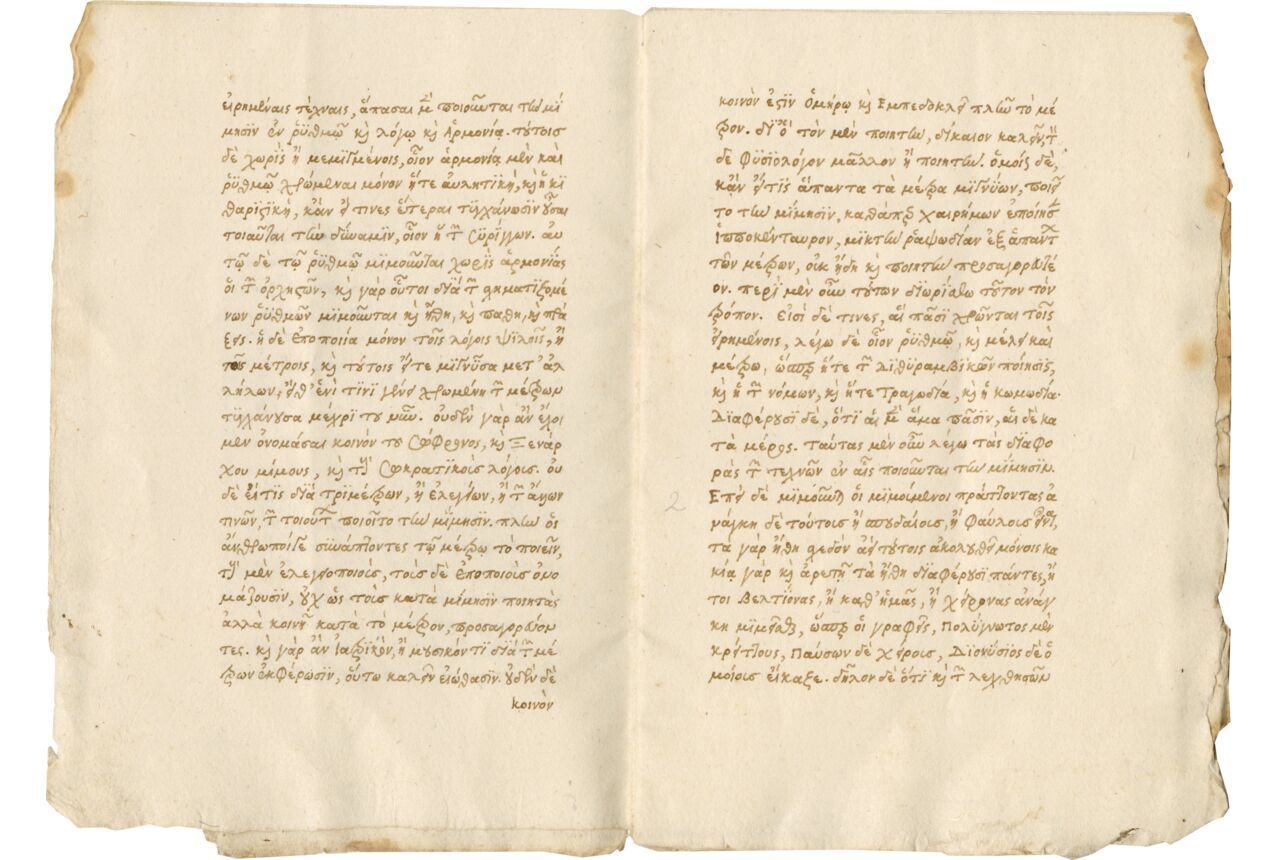 εἰρημέναις τέχναις, ἅπασαι μὲν ποιοῦνται τὴν μί
μησϊν ἐν ῥϋθμῷ κὶ λόγῳ κὶ ἁρμονίᾳ. τούτοισ
δὲ χωρὶς ἢ μεμιϊγμένοις, οἷον ἁρμονίᾳ μὲν καὶ
ῥϋθμῷ χρώμεναι μόνον ἥτε αυλητικὴ, κὶ ἡ κϊ
θαριστϊκὴ, κἂν εἴ τινες ἕτεραι τϋγχάνωσϊν οὖσαι
τοιαῦται τὴν δύναμϊν, οἷον ἡ τῶν Σϋρίγγων. αυ
τῷ δὲ τῷ ῥϋθμῷ μϊμοῦνται χωρὶς ἁρμονίας
ὁι τῶν ὀρχηστῶν, κὶ γὰρ οὗτοι δϊὰ τῶν σχηματϊζομέ
νων ῥϋθμῶν μϊμοῦνται κὶ ἤθη, κὶ παθη, κὶ πρά
ξεις. ἡ δὲ ἐποποιία μόνον τοῖς λόγοις ψϊλοῖς, ἢ
τοῖς μέτροις, κὶ τούτοις εἴτε μϊγνῦσα μετ' ἀλ
λήλων, εἴθ' ἑνὶ τϊνϊ γένει χρωμένη τῶν μέτρων
τϋγχάνουσα μέχρϊ του νῦν. ουδὲν γὰρ ἂν ἔχοι
μεν ὀνομάσαι κοινὸν του Σώφρονος, κὶ Ξενάρ
χου μίμους, κὶ τοὺς Σωκρατϊκοὶς λόγοις. ου
δὲ εἴτϊς δϊὰ τρϊμέτρων, ἢ ἐλεγείων, ἢ τῶν ἄλλων
τινῶν, τῶν τοιούτων ποιοῖτο τὴν μίμησϊν. πλὴν ὁι
ἄνθρωποίγε σϋνάπτοντες τῷ μέτρῳ τὸ ποιεῖν,
τοὺς μὲν ἐλεγειοποιοὶς, τοὶς δὲ ἐποποιοὶς ὀνο
μάζουσϊν, οὐχ ὡς τοὶς κατὰ μίμησϊν ποιητὰς
ἀλλὰ κοινῇ κατὰ τὸ μέτρον, προσαγορεύον
τες. κὶ γὰρ ἂν ἰατρϊκὸν, ἢ μουσικόν τϊ δϊὰ τῶν μέ
τρων ἐκφέρωσϊν, ὅυτω καλεῖν εἰώθασϊν. οὐδὲν δὲ
κοινὸν
κοινὸν ἐστϊν Ὁμήρῳ κὶ Εμπεδοκλεῖ πλὴν τὸ μέ
τρον. δϊὸ τὸν μὲν ποιητὴν, δίκαιον καλεῖν, τὸν
δε Φϋσϊολόγον μᾶλλον ἢ ποιητὴν. ὁμοίς δὲ,
κἂν εἴ τϊς ἅπαντα τὰ μέτρα μϊγνϋων, ποιεῖ
το τὴν μίμησϊν, καθάπερ Χαιρήμων ἐποίησε
Ἱπποκένταυρον, μϊκτὴν ῥαψωδίαν ἐξ ἁπάντων
τῶν μέτρων, οὐκ ἤδη κὶ ποιητὴν προσαγορευτέ
ον. περὶ μὲν οὖν τούτων δϊωρίσθω τοῦτον τὸν
τρόπον. Εἰσὶ δέ τινες, αἳ πᾶσϊ χρῶνται τοῖς
εἰρημένοις, λέγω δὲ οἷον ῥϋθμῷ, κὶ μέλει καὶ
μέτρῳ, ὥσπερ ἥτε τῶν Δϊθϋραμβϊκῶν ποίησϊς,
κὶ ἡ τῶν νόμων, κὶ ἥτε Τραγωδία, κὶ ἡ κωμωδία.
Δϊαφέρουσϊ δὲ, ὅτϊ αἱ μὲν ἅμα πᾶσϊν, αἱ δὲ κα
τὰ μέρος. Ταύτας μὲν οὖν λέγω τὰς δϊαφο
ρὰς τῶν τεχνῶν ἐν αἷς ποιοῦνται τὴν μίμησϊν.
Επεὶ δὲ μϊμοῦνται ὁι μϊμούμενοι πράττοντας ἀ
νάγκη δὲ τούτοις ἢ σπουδαίοις, ἢ Φαύλοις εἶναι,
τὰ γὰρ ἤθη σχεδὸν ἀεὶ τούτοις ἀκολουθεῖ μόνοις κα
κίᾳ γὰρ κὶ ἀρετῇ τὰ ἤθη δϊαφέρουσϊ πάντες, ἤ
τοι Βελτίονας, ἢ καθ' ἡμᾶς, ἢ χείρονας ἀνάγ
κη μϊμεῖσθαι, ὥσπερ οἱ γραφεῖς, Πολύγνωτος μὲν
κρείττους, Παύσων δὲ χείρους, Διονύσϊος δὲ ὁ
μοίους εἴκαζε. δῆλον δὲ ὅτϊ κὶ τῶν λεχθησῶν
2